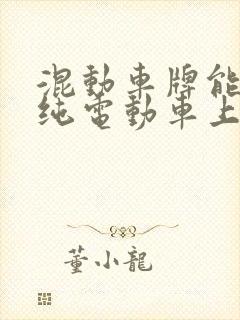 混動車牌能
純電動車上
董小龍